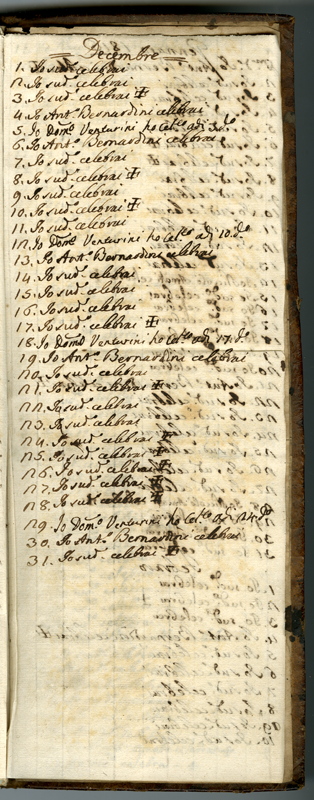 = Decembre =
1. Io sud.o celebrai
2. Io sud.o celebrai
3. Io sud.o celebrai ✠
4. Io Ant.o Bernardini celebrai
5. Io Dom.o Venturini ho Cel.to adi 3. d.o
6. Io Ant.o Bernardini celebrai
7. Io sud.o celebrai
8. Io sud.o celebrai ✠
9. Io sud.o celebrai
10. Io sud.o celebrai ✠
11. Io sud.o celebrai
12. Io Dom.o Venturini ho Cel.to adi 10. d.o
13. Io Ant.o Bernardini celebrai
14. Io sud.o celebrai
15. Io sud.o celebrai
16. Io sud.o celebrai
17. Io sud.o celebrai ✠
18. Io Dom.o Venturini ho Cel.to adi 17. d.o
19. Io Ant.o Bernardini celebrai
20. Io sud.o celebrai
21. Io sud.o celebrai ✠
22. Io sud.o celebrai
23. Io sud.o celebrai
24. Io sud.o celebrai ✠
25. Io sud.o celebrai ✠
26. Io sud.o celebrai ✠
27. Io sud.o celebrai ✠
28. Io sud.o celebrai ✠
29. Io Dom.o Venturini ho Cel.to adi 24. d.o
30. Io Ant.o Bernardini celebrai
31. Io sud.o celebrai ✠